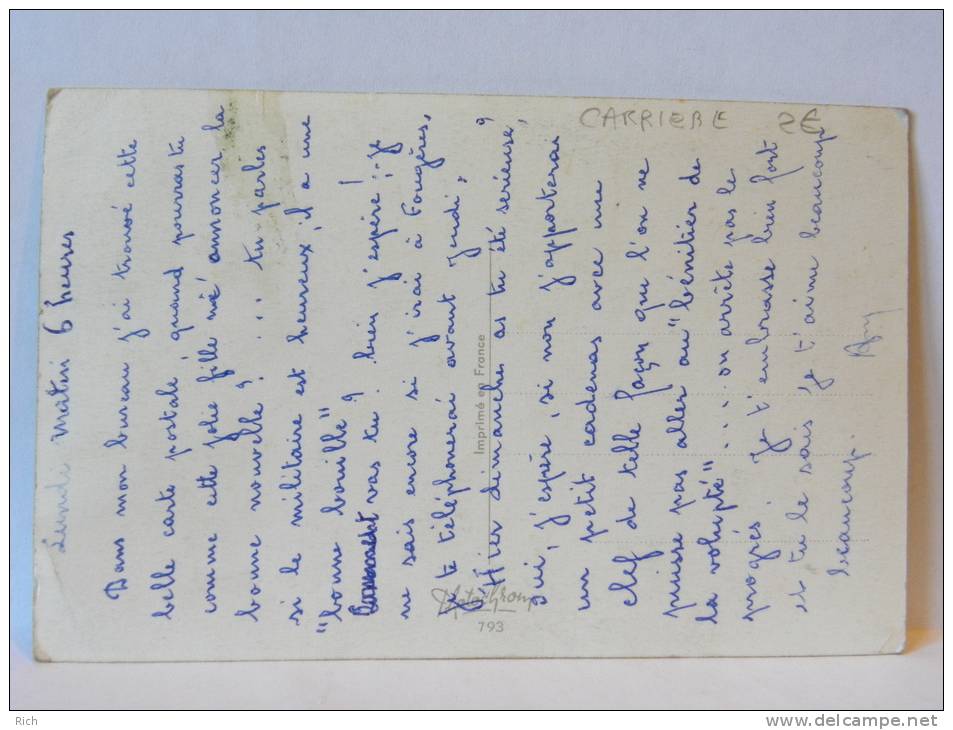 Lundi matin 6 heures
Dans mon bureau j'ai trouvé cette
belle carte postale, quand pourras tu
comme cette jolie fille m' annoncer la
bonne nouvelle ? ... tu parles
si le militaire est heureux, il a une
"bonne bouille"
Comment vas tu ? bien j'espère ! - je
ne sais encore si j'irai à Fougères,
je te téléphonerai avant jeudi,
Hier dimanche as tu été sérieuse ?
oui, j'espère, si non j'apporterai
un petit cadenas avec une
clef de telle façon que l'on ne
puisse pas aller au "bénitier de
la volupté" ... on arête pas le
progrés. Je t'embrasse bien fort
et tu le sais je t'aime beaucoup
beaucoup.
CARRIERE 2€
Imprimé en France
Photochrom
793
Rich
www.delcampe.net